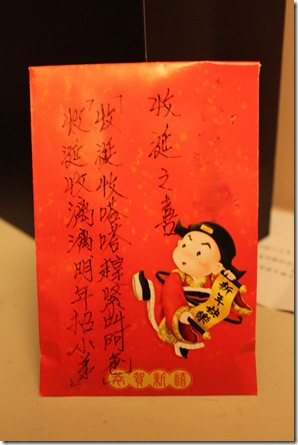 收涎之喜
「收涎收嗒嗒趕緊叫阿爸」
「收涎收漓漓明年招小弟」
新年快樂
恭賀新禧